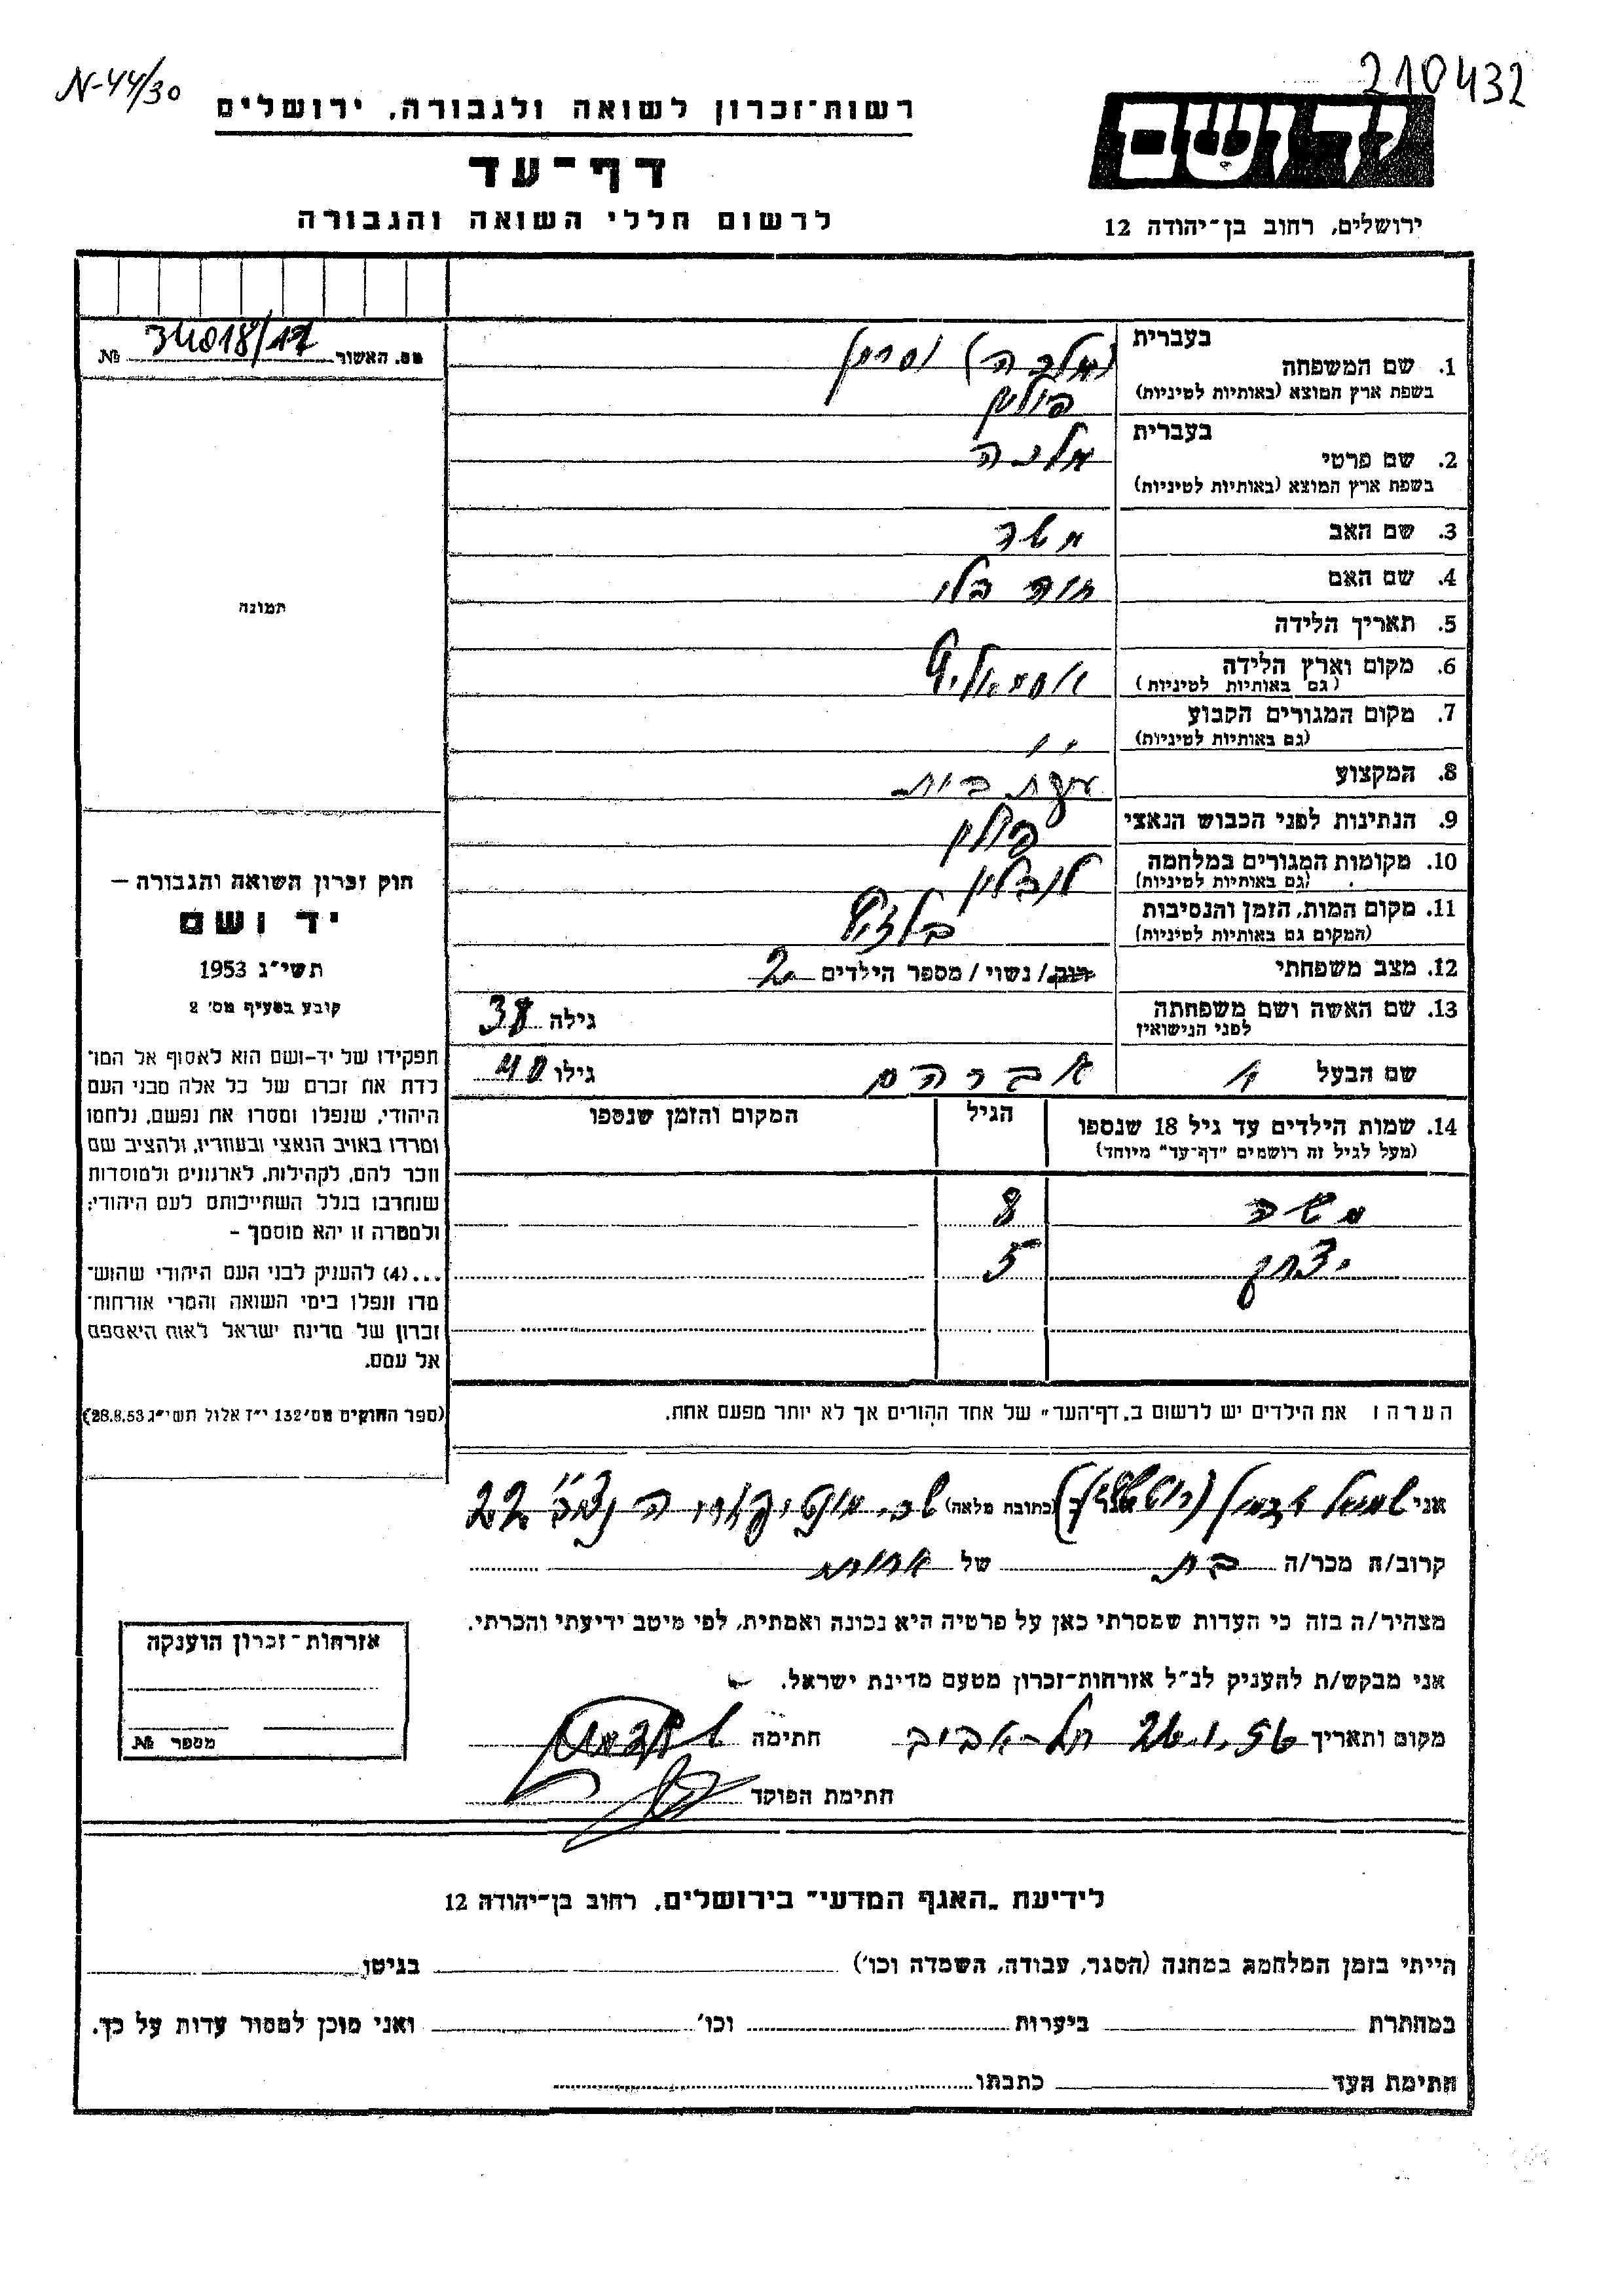 N-44/30
210432
רשות-זכרון לשואה ולגבורה, ירושלים
דף-עד
לרשום חללי השואה והגבורה
יד ושם
ירושלים, רחוב בן-יהודה 12
מס. האשור 34018/17 №
תמונה
חוק זכרון השואה והגבורה –
יד ושם
תשי״ג 1953
קובע בסעיף מס׳ 2
תפקידו של יד-ושם הוא לאסוף אל המו־
לדת את זכרם של כל אלה מבני העם
היהודי, שנפלו ומסרו את נפשם, נלחמו
ומרדו באויב הנאצי ובעוזריו, ולהציב שם
וזכר להם, לקהילות, לארגונים ולמוסדות
שנחרבו בגלל השתייכותם לעם היהודי;
ולמטרה זו יהא מוסמך –
...(4) להעניק לבני העם היהודי שהוש־
מדו ונפלו בימי השואה והמרי אזרחות־
זכרון של מדינת ישראל לאות היאספם
אל עמם.
(ספר החוקים מס׳ 132 י״ז אלול תשי״ג 28.8.53)
בעברית
1. שם המשפחה
בשפת ארץ המוצא (באותיות לטיניות)
בעברית
2. שם פרטי מלכה
בשפת ארץ המוצא (באותיות לטיניות)
3. שם האב משה
4. שם האם חוה
5. תאריך הלידה
6. מקום וארץ הלידה
(גם באותיות לטיניות)
7. מקום המגורים הקבוע ״
(גם באותיות לטיניות)
8. המקצוע עקרת בית
9. הנתינות לפני הכבוש הנאצי פולין
10. מקומות המגורים במלחמה לובלין
(גם באותיות לטיניות)
11. מקום המות, הזמן והנסיבות
(המקום גם באותיות לטיניות)
12. מצב משפחתי רוק/ נשוי / מספר הילדים 2
13. שם האשה ושם משפחתה גילה 38
לפני הנישואין
שם הבעל אברהם גילו 40
14. שמות הילדים עד גיל 18 שנספו הגיל המקום והזמן שנספו
(מעל לגיל זה רושמים ״דף-עד״ מיוחד)
משה 8
יצחק 5
הערה: את הילדים יש לרשום ב„דף-העד״ של אחד ההורים אך לא יותר מפעם אחת.
אני (כתובת מלאה) 22
קרוב/ה מכר/ה בת של אחות
מצהיר/ה בזה כי העדות שמסרתי כאן על פרטיה היא נכונה ואמתית, לפי מיטב ידיעתי והכרתי.
אני מבקש/ת להעניק לנ״ל אזרחות-זכרון מטעם מדינת ישראל.
מקום ותאריך 26.1.56 תל-אביב חתימה
חתימת הפוקד
אזרחות-זכרון הוענקה
מספר №
לידיעת „האגף המדעי״ בירושלים, רחוב בן-יהודה 12
הייתי בזמן המלחמה במחנה (הסגר, עבודה, השמדה וכו׳) בגיטו
במחתרת ביערות וכו׳ ואני מוכן למסור עדות על כך.
חתימת העד כתבתו